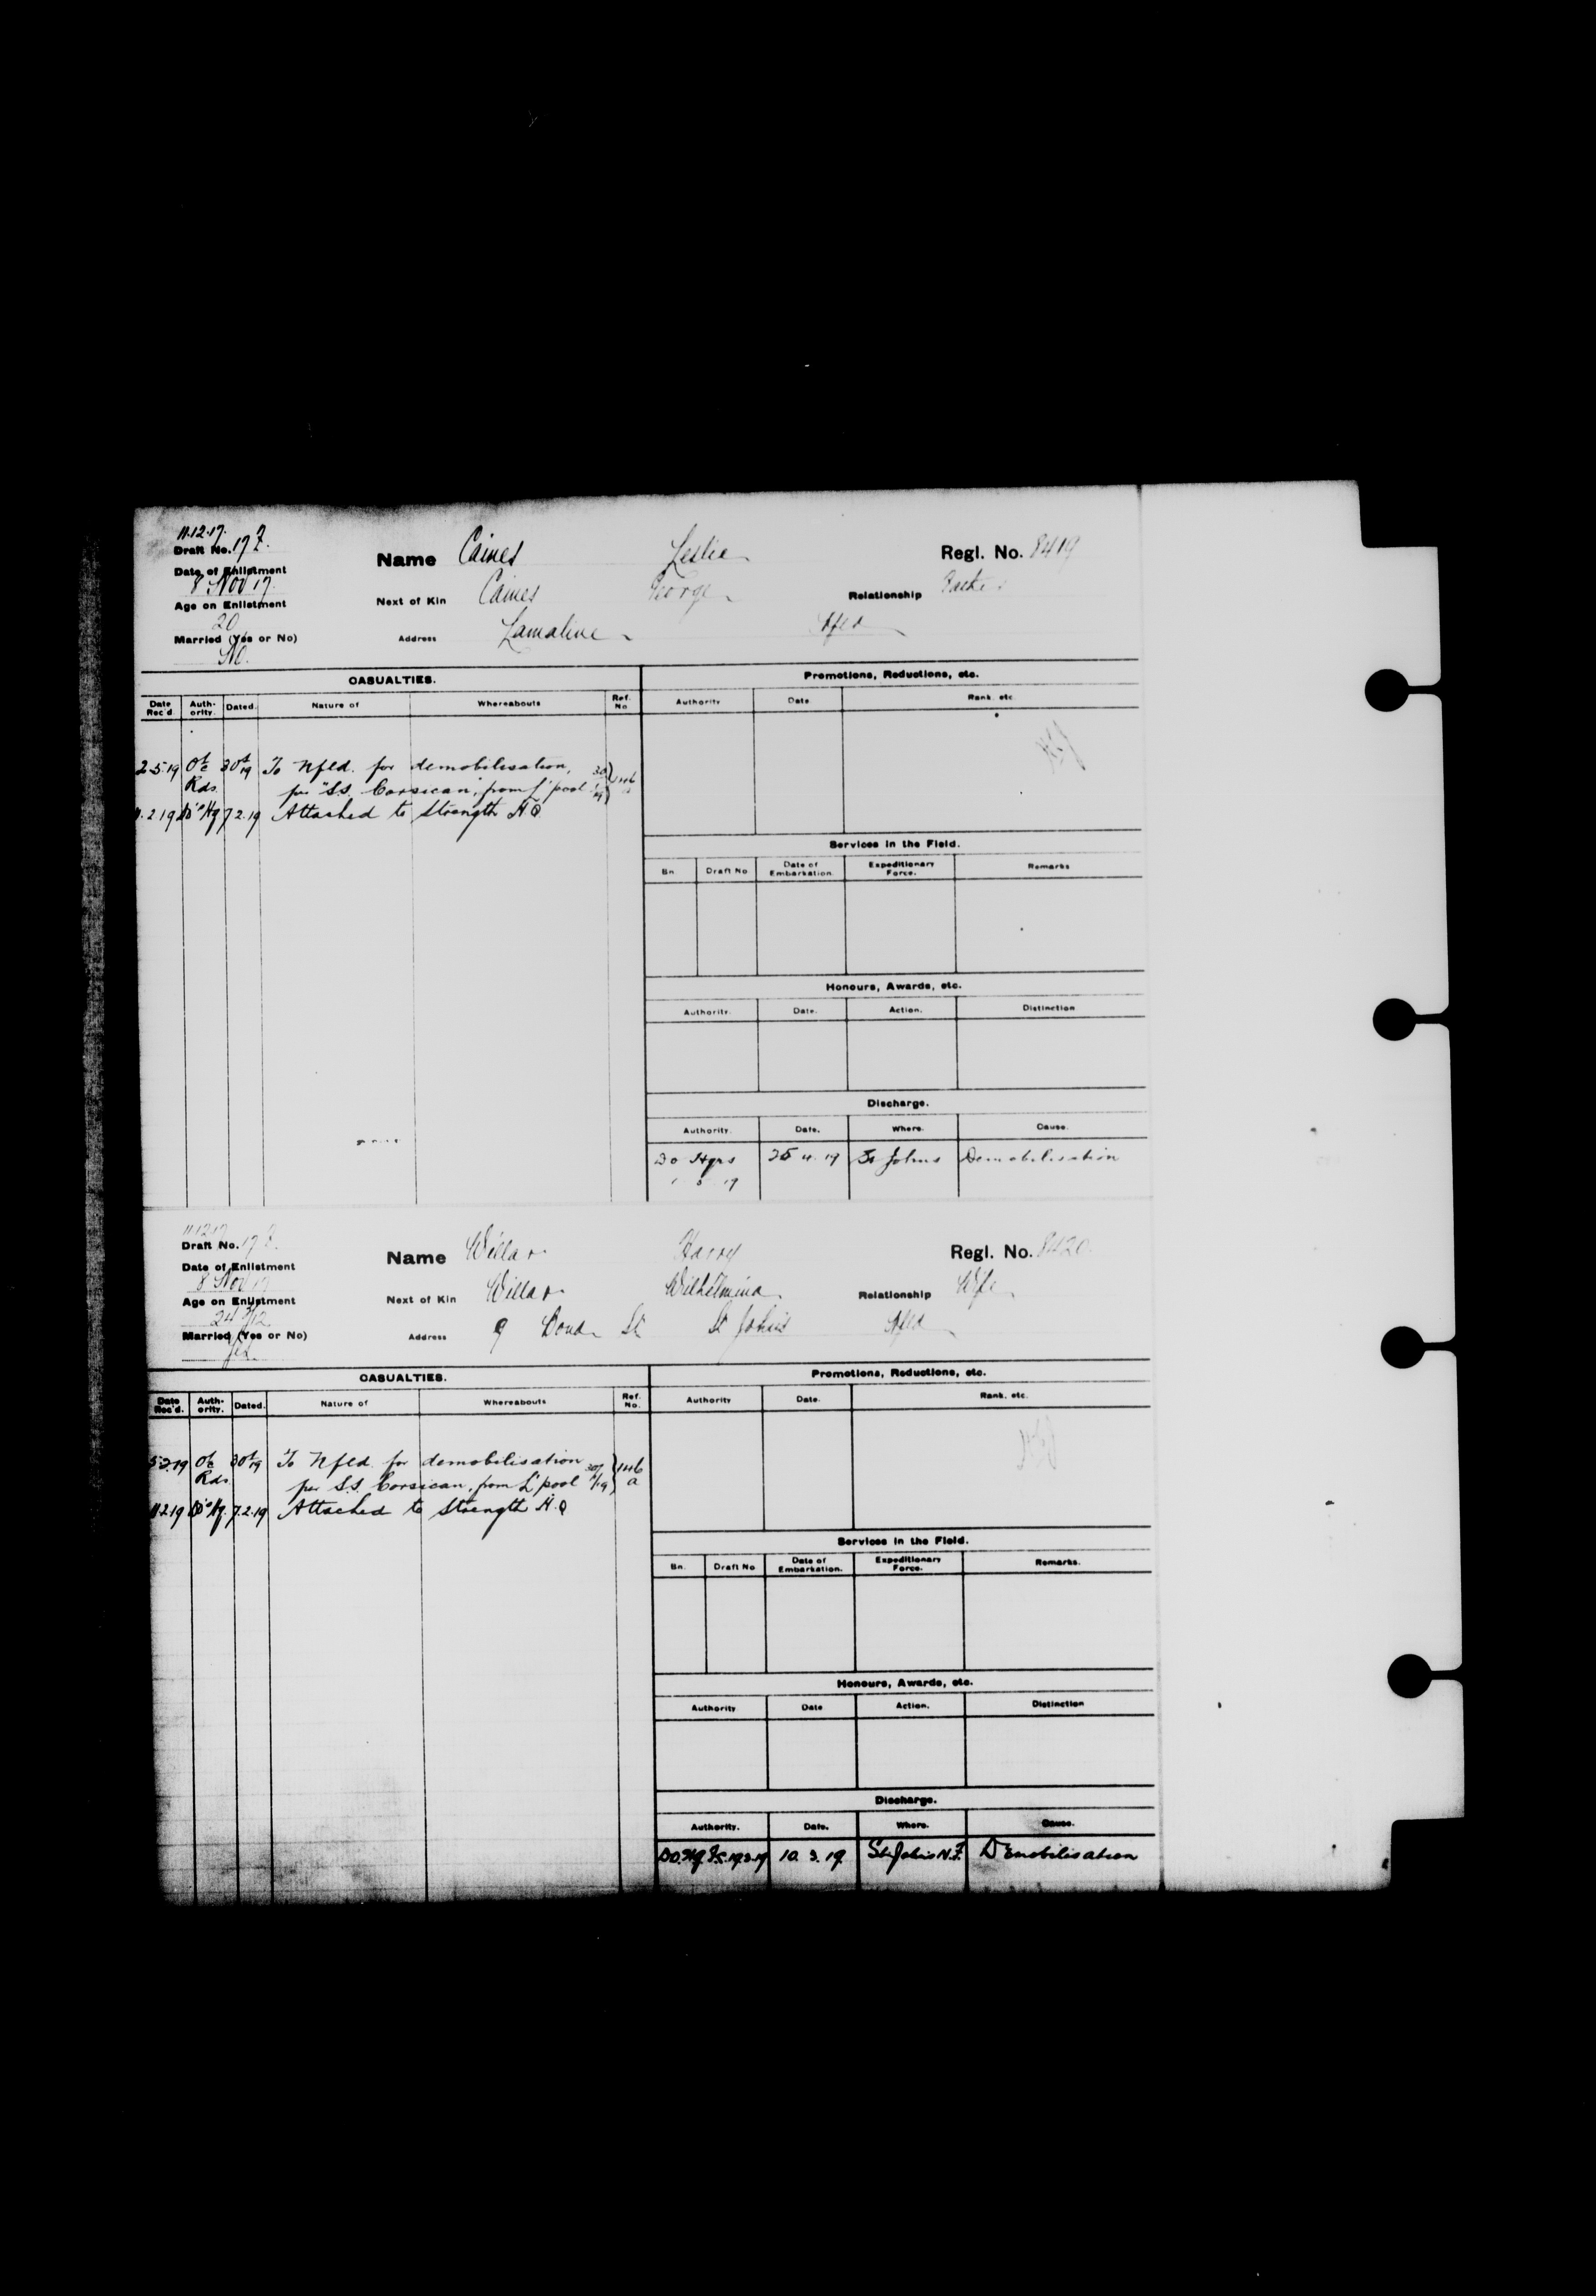 11.12.17.
Draft No. 17
Name Caines Leslie Regl. No. 8419
Date of Enlistment
8 Nov 17.
Next of Kin Caines George Relationship Father
Age on Enlistment
20
Address Lamaline Nfld
Married (Yes or No)
No.
CASUALTIES.
Promotions, Reductions, etc.
Date Rec'd. Auth-ority. Dated. Nature of Whereabouts Ref. No
Authority Date. Rank. etc.
2.5.19 30 19 To Nfld. for demobilisation,
Rds. per "S.S. Corsican," from L'pool
11.2.19 Hq 7.2.19 Attached to Strength H.Q.
Services in the Field.
Bn Draft No Date of Embarkation. Expeditionary Force. Remarks
Honours, Awards, etc.
Authority. Date. Action. Distinction
Discharge.
Authority. Date. Where. Cause.
DO Hqrs 25 4 19 St Johns Demobilisation
11.12.17
Draft No. 17
Name Willar Harry Regl. No. 8420
Date of Enlistment
8 Nov 17
Next of Kin Willar Wilhelmina Relationship Wife
Age on Enlistment
Address 9 St St Johns Nfld
Married (Yes or No)
Yes.
CASUALTIES.
Promotions, Reductions, etc.
Date Rec'd. Auth-ority. Dated. Nature of Whereabouts Ref. No.
Authority Date. Rank. etc.
5.2.19 30 19 To Nfld. for demobilisation 146
Rds per S.S. Corsican, from L'pool a
11.2.19 Hq. 7.2.19 Attached to Strength H.Q
Services in the Field.
Bn. Draft No Date of Embarkation. Expeditionary Force. Remarks.
Honours, Awards, etc.
Authority Date Action. Distinction
Discharge.
Authority. Date. Where. Cause.
DO.Hq. 10.3.19 St. Johns N.F. Demobilisation